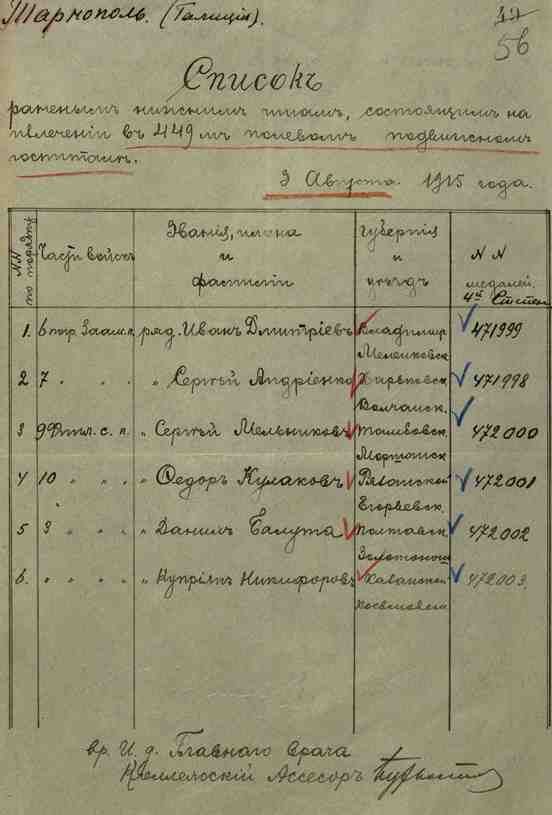 Тарнополь. (Галиція).
56
Списокъ
раненымъ нижнимъ чинамъ, состоящимъ на
излеченіи въ 449 мъ полевомъ подвижномъ
госпиталѣ.
3 Августа 1915 года.
NN по порядку
Части войскъ
Званія, имена и фамиліи
Губернія и уѣздъ
NN медалей. 4й Степ.
1. 6 погр. Заам. п. ряд. Иванъ Дмитріевъ Владимир. 471999
Меленковск.
2 7 " " " " Сергѣй Андріенко Харьковск. 471998
Волчанск.
3 99 " Сергѣй Мельниковъ Тамбовск. 472000
Моршанск.
4 10 " " " " Ѳедоръ Кулаковъ Рязанской 472001
Егорьевск.
5 3 " " " " Данилъ Балута Полтавск. 472002
Золотонош
6. " " " " " Купріянъ Никифоровъ Казанской 472003.
вр. И. д. Главнаго Врача
Коллежскій Ассесоръ